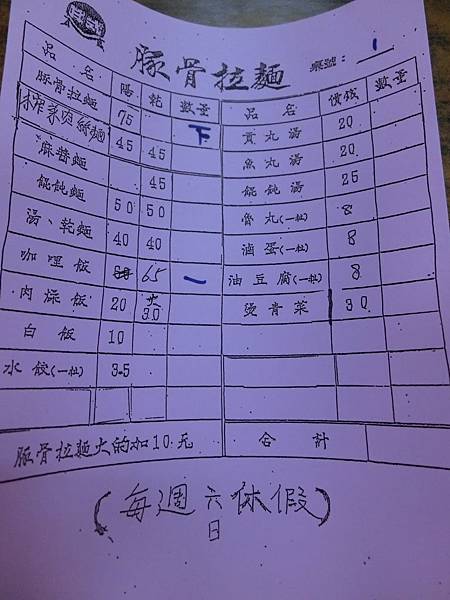 豚骨拉麵
桌號: 1
品名 湯 乾 數量 品名 價錢 數量
豚骨拉麵 75 下 貢丸湯 20
榨菜肉絲麵 45 45 魚丸湯 20
麻醬麵 45 餛飩湯 25
餛飩麵 50 50 魯丸(一粒) 8
湯、乾麵 40 40 滷蛋(一粒) 8
咖哩飯 65 一 油豆腐(一粒) 8
肉燥飯 20 大30 燙青菜 30
白飯 10
水餃(一粒) 3.5
豚骨拉麵大的加10元 合計
(每週六休假)
日